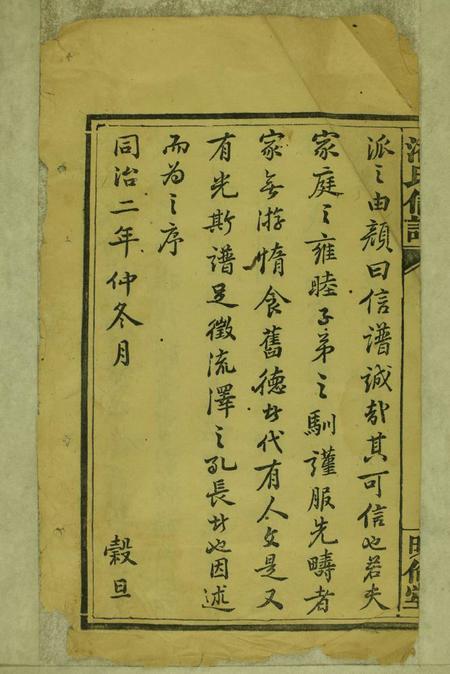 派之由顏曰信譜誠哉其可信也若夫
家庭之雍睦子弟之馴謹服先疇者
家無游惰食舊德者代有人文是又
有光斯譜足徵流澤之孔長者也因述
而為之序
同治二年仲冬月 穀旦
氏信譜